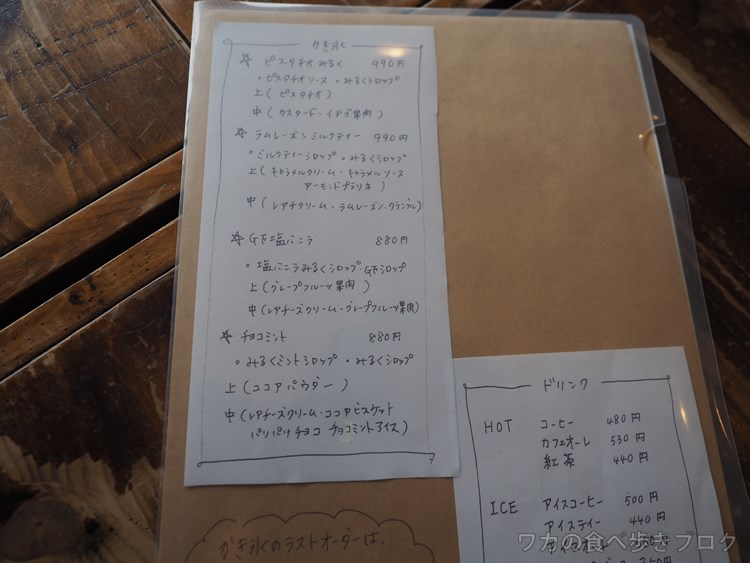 かき氷
☆ ピスタチオみるく 990円
・ピスタチオソース ・みるくシロップ
上(ピスタチオ)
中(カスタード・イチゴ果肉)
☆ ラムレーズンミルクティー 990円
・ミルクティーシロップ ・みるくシロップ
上(キャラメルクリーム・キャラメルソース
アーモンドプラリネ)
中(レアチクリーム・ラムレーズン・クランブル)
☆ G下塩バニラ 880円
・塩バニラみるくシロップ・G下シロップ
上(グレープフルーツ果肉)
中(レアチーズクリーム・グレープフルーツ果肉)
☆ チョコミント 880円
・みるくミントシロップ ・みるくシロップ
上(ココアパウダー)
中(レアチーズクリーム・ココアビスケット
パリパリチョコ チョコミントアイス)
ドリンク
HOT コーヒー 480円
カフェオーレ 530円
紅茶 440円
ICE アイスコーヒー 500円
アイスティー 440円
かき氷のラストオーダーは、
ワカの食べ歩きブログ